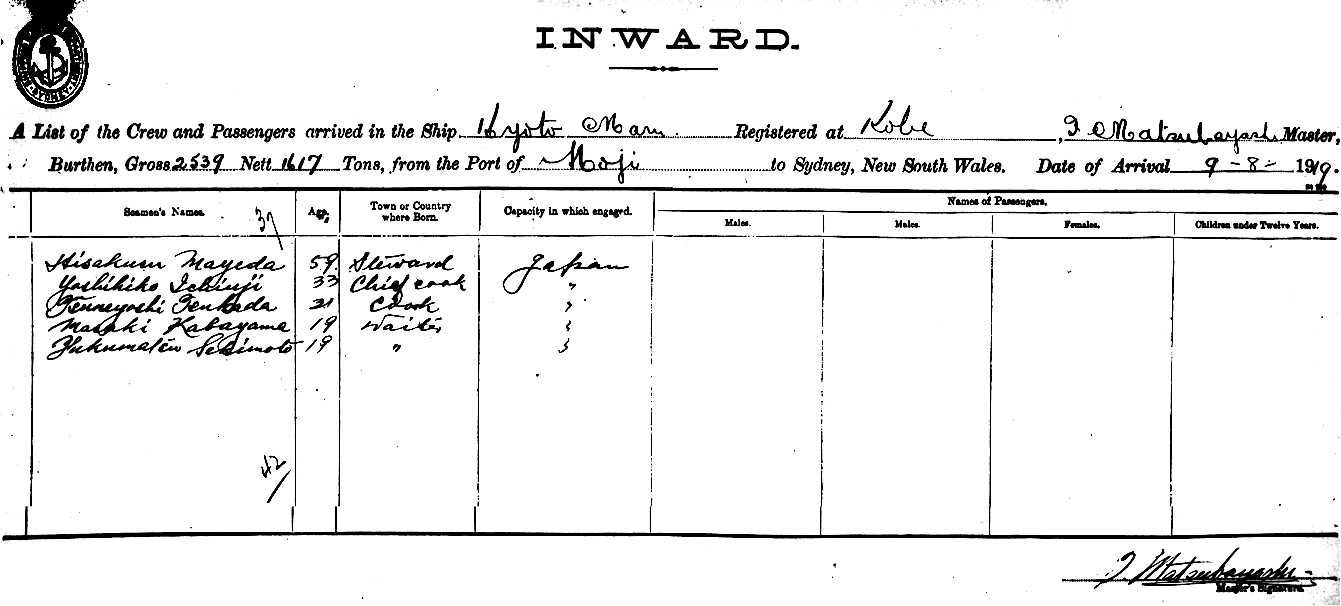 INWARD.
SYDNEY
A List of the Crew and Passengers arrived in the Ship Kyoto Maru Registered at Kobe, I Matsubayashi Master,
Burthen, Gross 2539 Nett 1617 Tons, from the Port of Moji to Sydney, New South Wales. Date of Arrival 9-8- 1919.
Seamen's Names. 37/ Age, Town or Country where Born. Capacity in which engaged. Names of Passengers.
Males. Males. Females. Children under Twelve Years.
Mayeda 59 Steward Japan
Yoshihiko Ichiuji 33 Chief cook "
21 Cook "
Masaki Kabayama 19 Waiter "
Sekimoto 19 " "
42/
I Matsubayashi
Master's Signature.